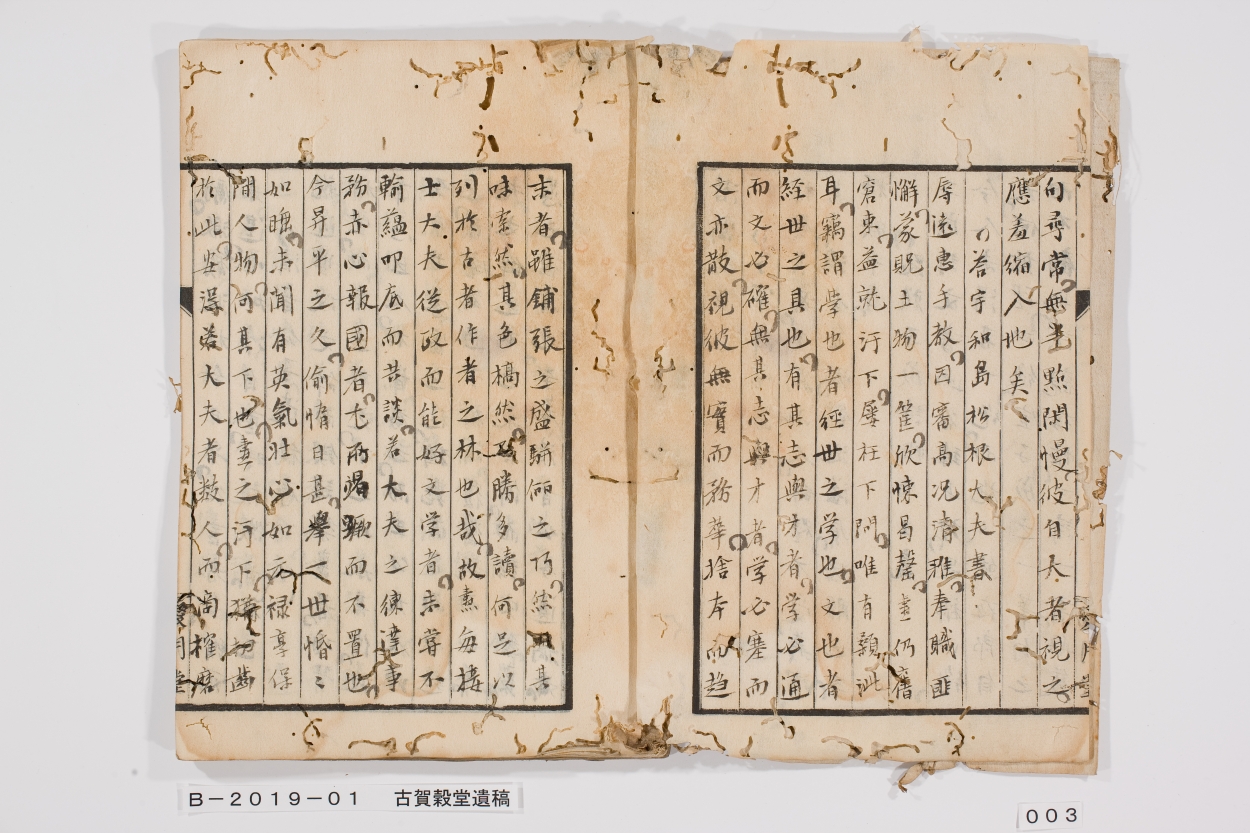 句尋常無光點閑慢彼自大者視之
應羞縮入地矣
答宇和島松根大夫書
辱遠惠手教因審高况清雅奉職匪
懈蒙貺土物一筐欣懷曷罄僕仍舊
窮東益就汙下屡枉下問唯有顙泚
耳竊謂学也者經世之学也文也者
経世之具也有其志與才者学必通
而文必確無其志與才者学必塞而
文亦散視彼無實而務華捨本而趨
末者雖鋪張之盛駢儷之巧然其
味索然其色槁然勝多讀何足以
列於古者作者之林也哉故毎接
士大夫従政而能好文学者未嘗不
輸蘊叩底而共談若大夫之練達事
務赤心報國者尤所竭蹶而不置也
今昇平之久偷惰日甚舉一世惛〻
如睡未聞有英氣壮心如元禄享保
間人物何其下也僕之汙下猶切齒
於此安得若大夫者数人而商榷磨
B－2019－01　古賀穀堂遺稿
003